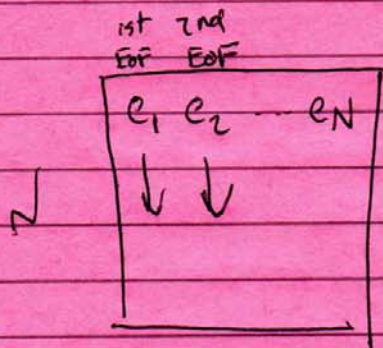 1st 2nd
EOF EOF
e1 e2 ... eN
N